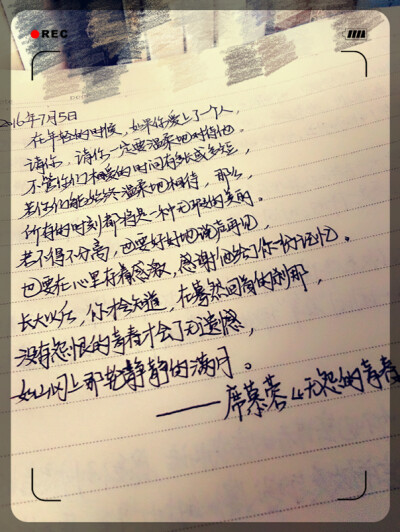 REC
2016年7月5日
在年轻的时候，如果你爱上了一个人，
请你，请你一定要温柔地对待他。
不管你们相爱的时间有多长或多短，
若你们能始终温柔地相待，那么，
所有的时刻都将是一种无瑕的美丽。
若不得不分离，也要好好地说声再见，
也要在心里存着感激，感谢他给了你一份记忆。
长大以后，你才会知道，在蓦然回首的刹那，
没有怨恨的青春才会了无遗憾，
如山冈上那轮静静的满月。
——席慕蓉《无怨的青春